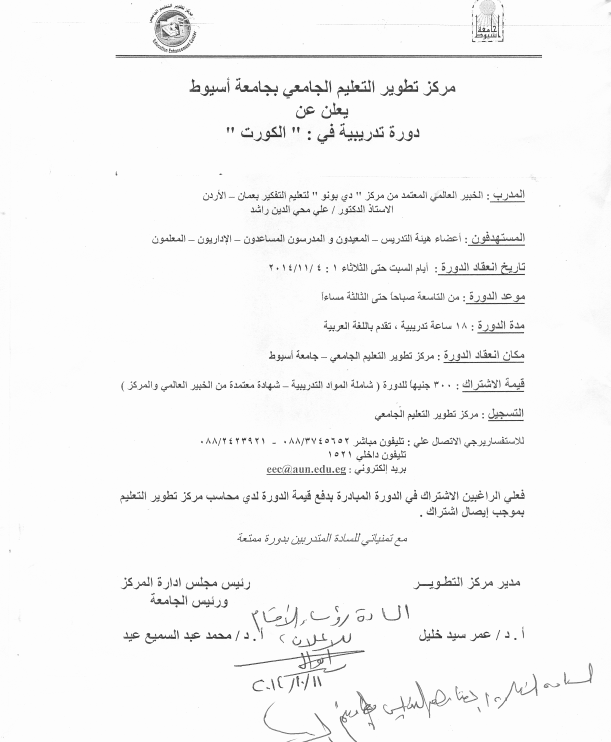 جامعة أسيوط
Education Enhancement Center
مركز تطوير التعليم الجامعي بجامعة أسيوط
يعلن عن
دورة تدريبية في : " الكورت "
المدرب : الخبير العالمي المعتمد من مركز " دي بونو " لتعليم التفكير بعمان – الأردن
الاستاذ الدكتور / علي محي الدين راشد
المستهدفون : أعضاء هيئة التدريس – المعيدون و المدرسون المساعدون – الإداريون – المعلمون
تاريخ انعقاد الدورة : أيام السبت حتى الثلاثاء ١ : ٤ /٢٠١٤/١١
موعد الدورة : من التاسعة صباحاً حتى الثالثة مساءاً
مدة الدورة : ١٨ ساعة تدريبية ، تقدم باللغة العربية
مكان انعقاد الدورة : مركز تطوير التعليم الجامعي – جامعة أسيوط
قيمة الاشتراك : ٣٠٠ جنيهاً للدورة ( شاملة المواد التدريبية – شهادة معتمدة من الخبير العالمي والمركز )
التسجيل : مركز تطوير التعليم الجامعي
للاستفساريرجي الاتصال علي : تليفون مباشر ٠٨٨/٣٧٤٥٦٥٢ - ٠٨٨/٢٤٢٣٩٢١
تليفون داخلي ١٥٢١
بريد إلكتروني : eec@aun.edu.eg
فعلي الراغبين الاشتراك في الدورة المبادرة بدفع قيمة الدورة لدي محاسب مركز تطوير التعليم
بموجب إيصال اشتراك .
مع تمنياتي للسادة المتدربين بدورة ممتعة
مدير مركز التطويـــر
رئيس مجلس ادارة المركز
ورئيس الجامعة
السادة رؤساء الأقسام
أ . د / عمر سيد خليل
للإعلان
أ . د / محمد عبد السميع عيد